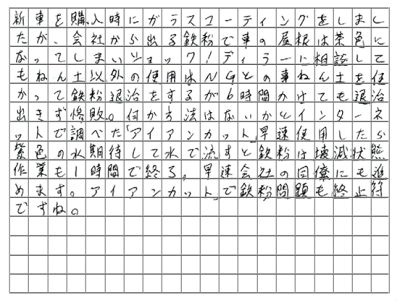 新車を購入時にガラスコーティングをしまし
たが、会社から出る鉄粉で車の屋根は茶色に
なってしまいショック！ディラーに相談して
もねん土以外の使用はNGとの事ねん土を使
かって鉄粉退治をするが6時間かけても退治
出きず惨敗。何か方法はないかとインターネ
ットで調べた「アイアンカット」早速使用したら
紫色の水期待して水で流すと鉄粉は壊滅状態
作業も1時間で終る。早速会社の同僚にも進
めます。アイアンカット」で鉄粉問題も終止符
ですね。